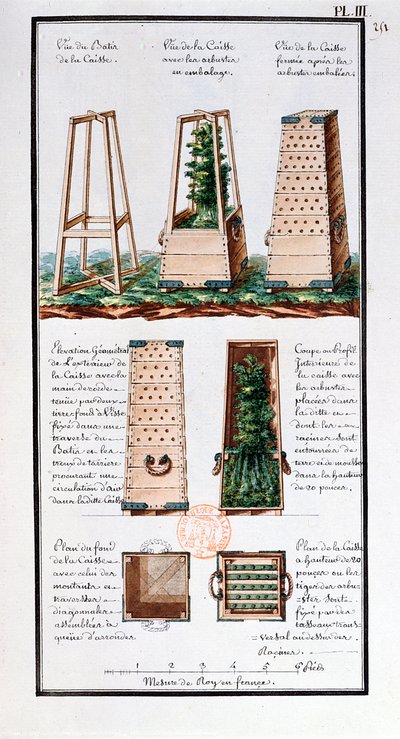 PL. III.
Vüe du Batir
de la Caisse.
Vüe de la Caisse
avec les arbustes
en embalage.
Vüe de la Caisse
fermée après les
arbustes embalées.
Elevation Géométral
de L'exterieur de
la Caisse avec la
main de corde
tenüe par deux
tirre-fonds à Vsse
fixé dans une
traverse du
Batis et les
troux de tarrière
procurant une
circulation d'air
dans la ditte Caisse
Coupe ou Profil
Interieure de
la caisse avec
les arbustes
placées dans
la ditte en
dont les
racines sont
entourrées de
terre et de mousse
dans la hauteur
de 20 pouces.
Plan du fond
de la Caisse
avec celui des
montants et
traverses
diagonnales
assemblées à
queüe d'arronde.
Plan de la Caisse
a hauteur de 20
pouces ou les
tiges des arbus
=tes sont
fixé par des
tasseaux trans
=versal au dessus des
Racines.
1 2 3 4 5 6 Pieds
Mesure de Roy en france.